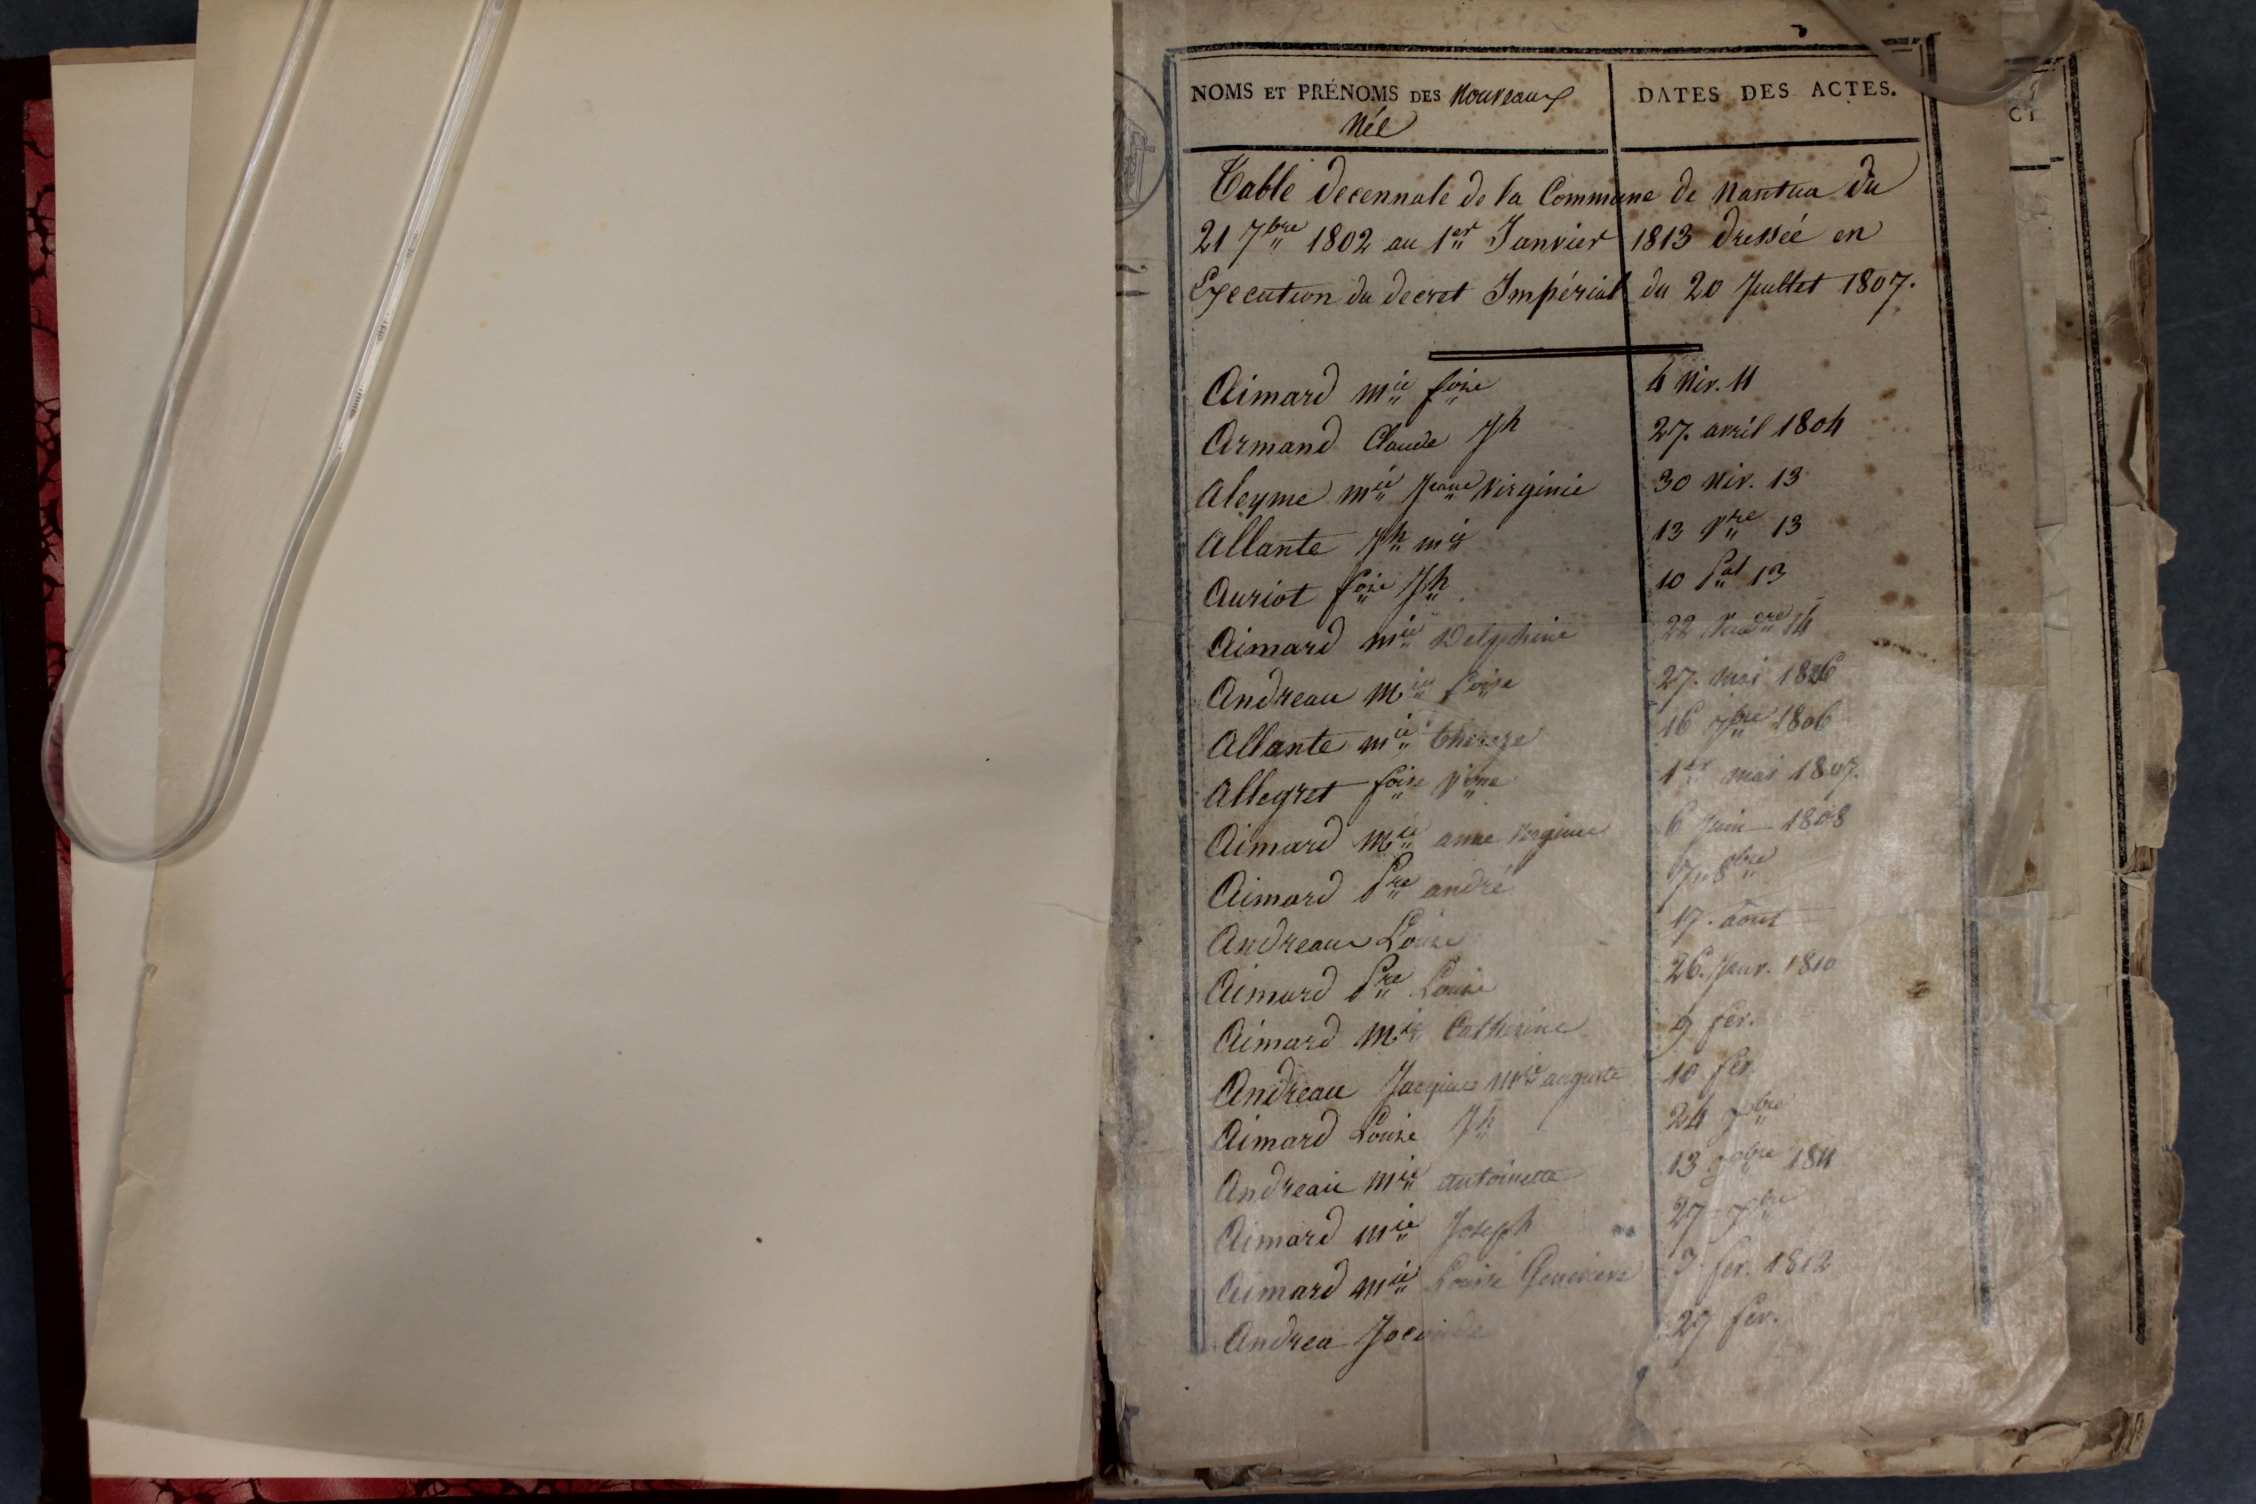 NOMS ET PRÉNOMS DES Nouveaux
DATES DES ACTES.
Née
Table decennale de la Commune de Nantua du
21 7bre 1802 au 1er Janvier 1813 dressée en
Execution du decret Impérial du 20 Juillet 1807.
Aimard Mie foise 4 Niv. 11
Armand Claude Jh 27. avril 1804
Aleyme Mie Jeane Virginie 30 Niv. 13
Allante Jh Mie 13 Vre 13
Auriot foise Jh 10 13
Aimard Mie Delphine 22 14
Andreau Mie foise 27. Mai 1806
Allante Mie thereze 16 7bre 1806
Allegret foise 1er mai 1807.
Aimard Mie anne Virginie 6 Juin 1808
Aimard Pre andré 7. 8bre
Andreau Louise 17. aout
Aimard Pre Louise 26. Janv. 1810
Aimard Mie Catherine 9 fév.
Andreau Jacques Mie auguste 10 fév
Aimard Louise Jh 24 7bre
Andreau Mie antoinette 13 1811
Aimard Mie Joseph 27 7bre
Aimard Mie Louise Genevieve 3 fév. 1812
Andrea 27 fév.
CT